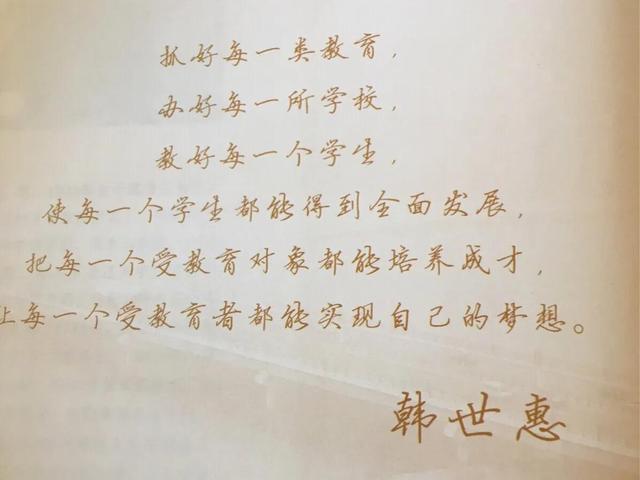 抓好每一类教育，
办好每一所学校，
教好每一个学生，
使每一个学生都能得到全面发展，
把每一个受教育对象都能培养成才，
让每一个受教育者都能实现自己的梦想。
韩世惠